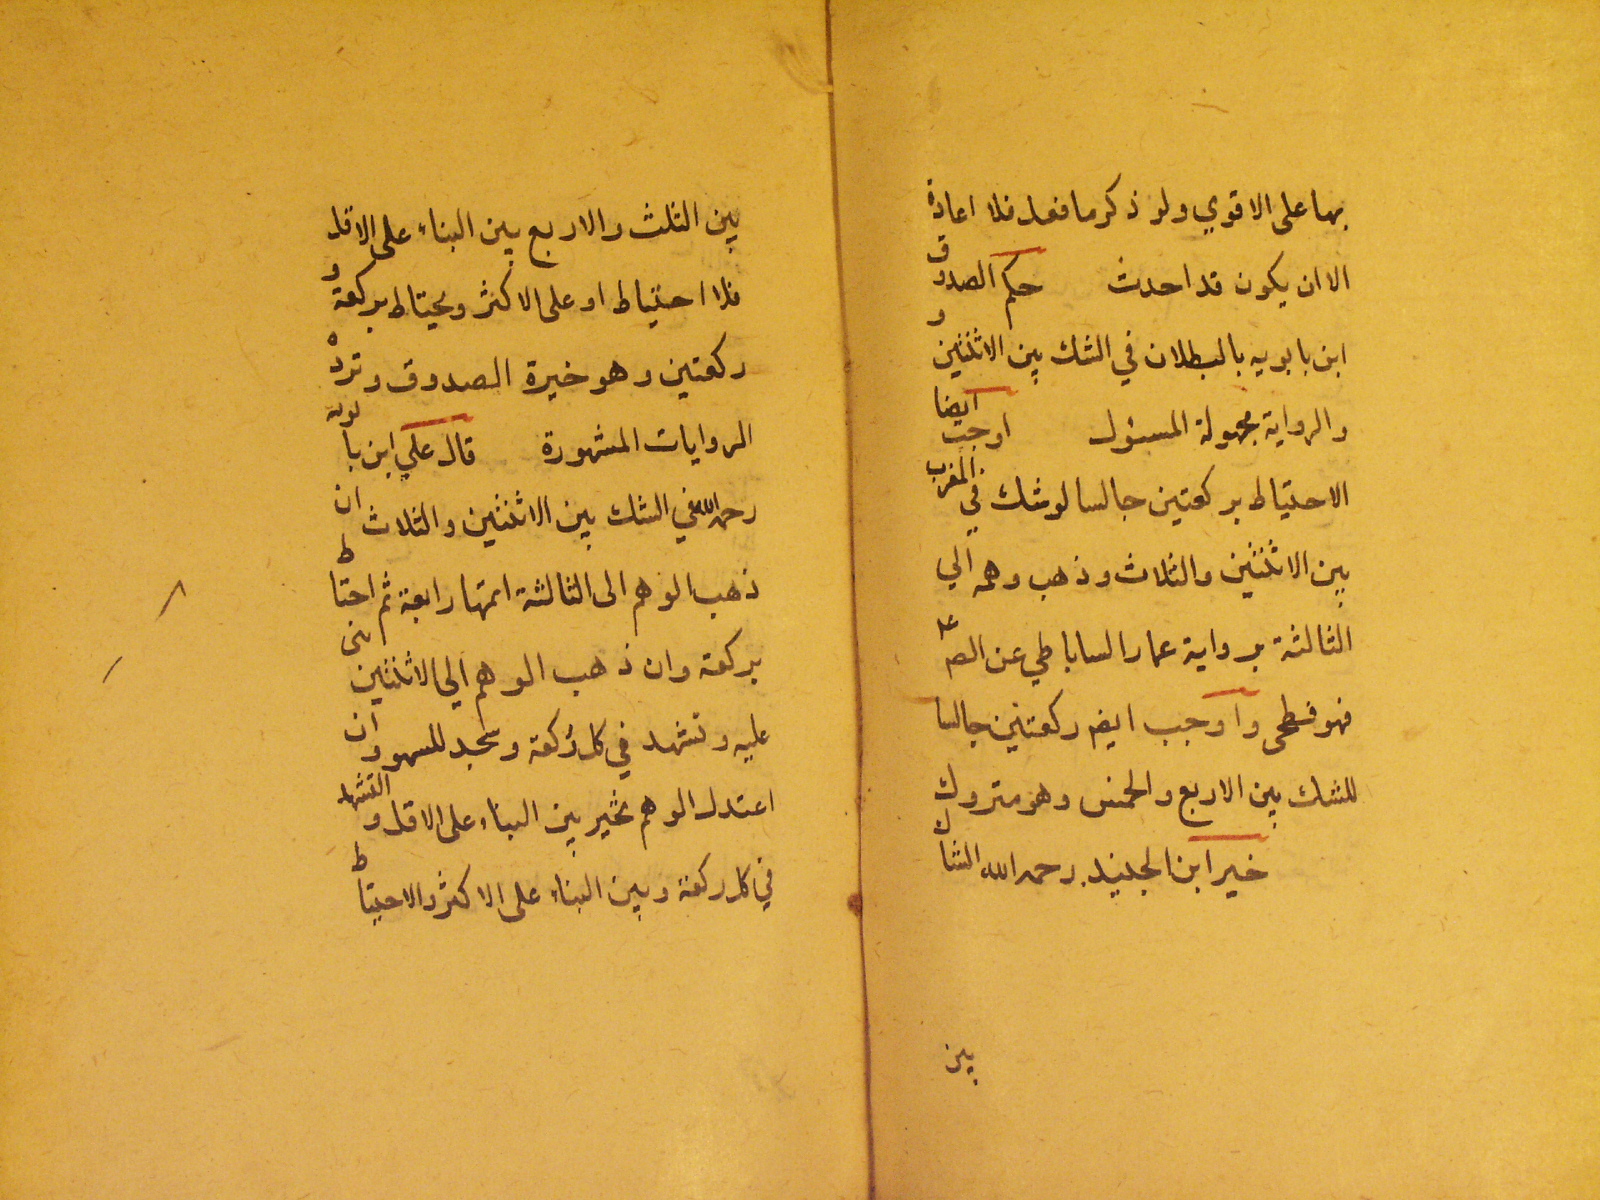 بها على الاقوي ولو ذكر ما فعل فلا اعادة
الا ان يكون قد احدث حكم الصدوق
ابن بابويه بالبطلان في الشك بين الاثنتين و
والرواية مجهولة المسئول اوجب ايضا
الاحتياط بركعتين جالسا لو شك في المغرب
بين الاثنتين والثلاث وذهب وهمه الي
الثالثة برواية عمار الساباطي عن الصم ع
فهو فطحى واوجب ايضم ركعتين جالسا
للشك بين الاربع والخمس وهو متروك
خير ابن الجنيد رحمه الله الشاك
بين
بين الثلث والاربع بين البناء على الاقل
فلا احتياط او على الاكثر ويحتاط بركعة و
ركعتين وهو خيرة الصدوق وترده
الروايات المشهورة قال علي ابن بابويه
رحمه الله في الشك بين الاثنتين والثلاث ان
ذهب الوهم الى الثالثة اتمها رابعة ثم احتاط
بركعة وان ذهب الوهم الي الاثنتين بنى
عليه وتشهد في كل ركعة وسجد للسهو وان
اعتدل الوهم تخير بين البناء على الاقل والتشهد
في كل ركعة وبين البناء على الاكثر والاحتياط